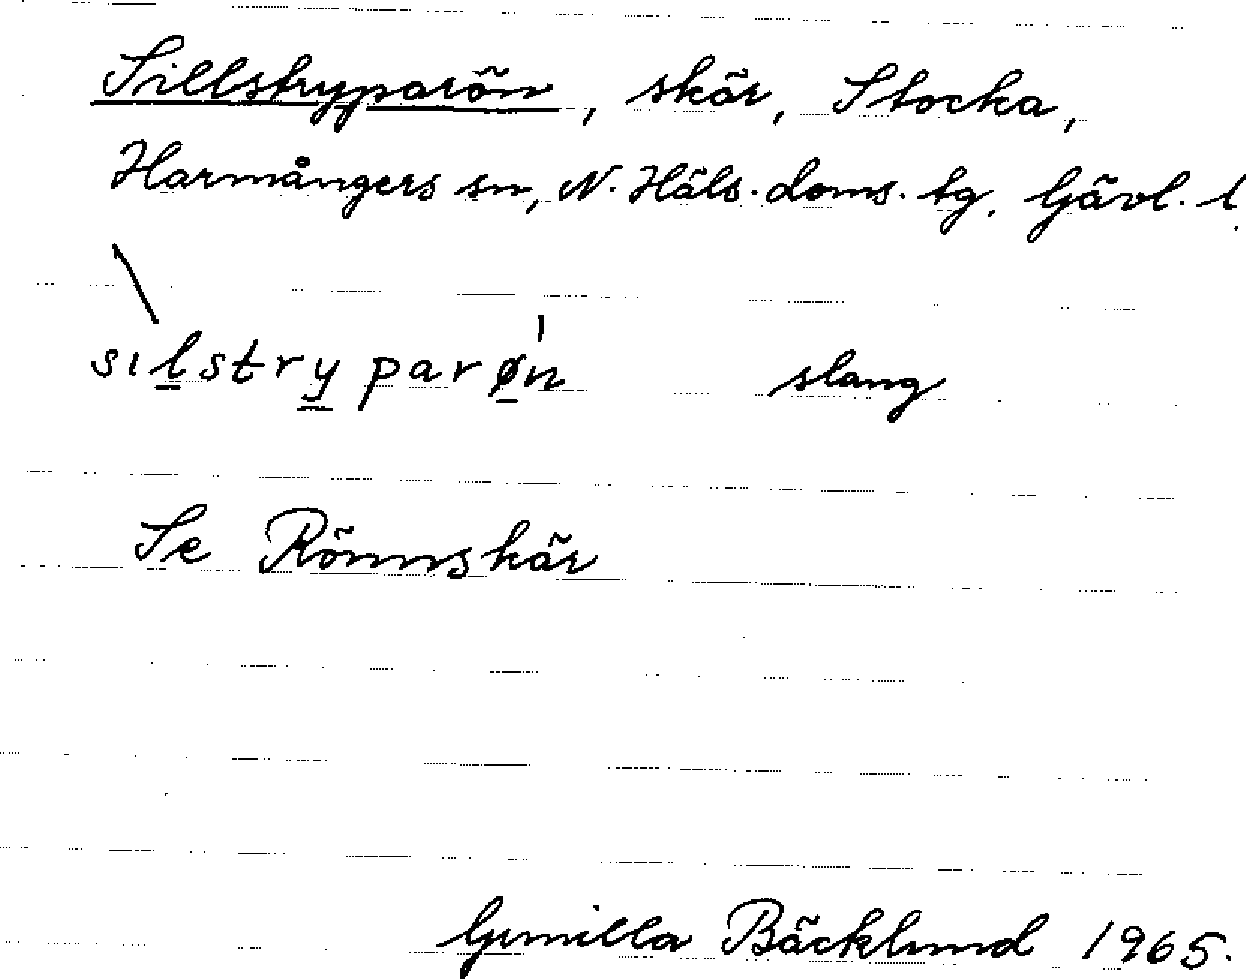 Sillstryparön, skär, Stocka,
Harmångers sn, N. Häls. doms. tg. Gävl. l.
sılstryparøn slang
Se Rönnskär
Gunilla Bäcklund 1965.